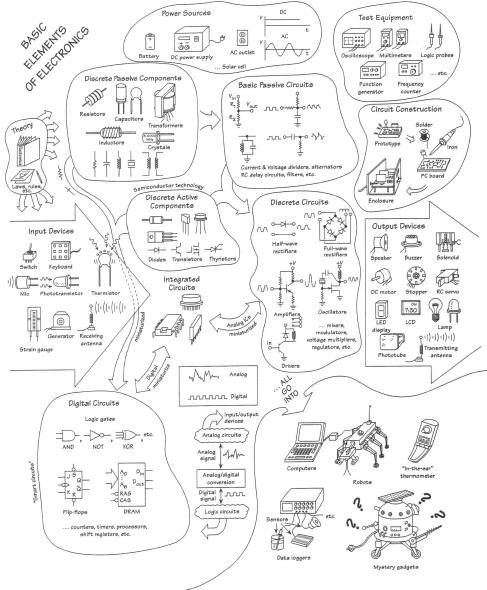 BASIC
ELEMENTS
OF ELECTRONICS
Power Sources
Battery
DC power supply
AC outlet
... Solar cell
DC
V
t
AC
V
t
Test Equipment
Oscilloscope
Multimeters
Logic probes
Function
generator
Frequency
counter
... etc.
Discrete Passive Components
Resistors
Capacitors
Transformers
Inductors
Crystals
Basic Passive Circuits
Vin
R1
Vout
R2
Current & Voltage dividers, attenuators
RC delay circuits, filters, etc.
Circuit Construction
Prototype
Solder
Iron
PC board
Enclosure
Theory
Laws, rules,
etc.
Semiconductor technology
Discrete Active
Components
Diodes
Transistors
Thyristors
Discrete Circuits
Half-wave
rectifiers
Full-wave
rectifiers
+V
Amplifiers
+V
Oscillators
+V
in
Drivers
... mixers,
modulators,
voltage multipliers,
regulators, etc.
Input Devices
Switch
Keyboard
Mic
Phototransistor
Thermistor
Strain gauge
Generator
Receiving
antenna
Integrated
Circuits
miniaturized
Analog ICs
miniaturized
Digital
miniaturize
Output Devices
Speaker
Buzzer
Solenoid
DC motor
Stepper
RC servo
LED
display
ON
7:30
LCD
Lamp
Phototube
Transmitting
antenna
Analog
Digital
... ALL
GO
INTO
Digital Circuits
Logic gates
AND
,
NOT
,
XOR
,
etc.
Flip-flops
J
S
Q
K
R
Q
A0
A8
RAS
CAS
Din
Dout
DRAM
... counters, timers, processors,
shift registers, etc.
Input/output
devices
Analog circuits
Analog
signal
Analog/digital
conversion
Digital
signal
Logic circuits
Computers
Robots
"In-the-ear"
thermometer
Sensors
etc.
Data loggers
? ? ? ?
Mystery gadgets